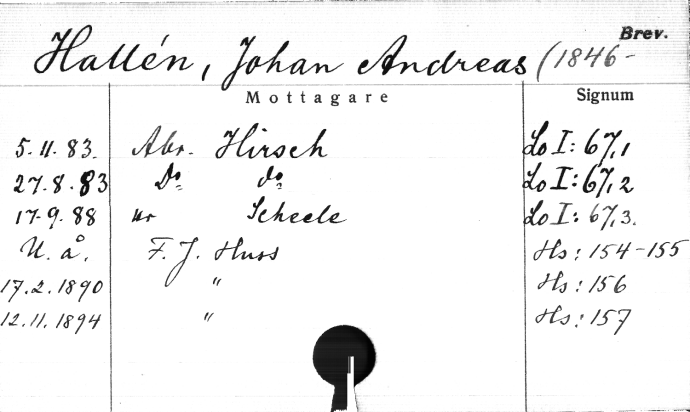 Brev.
Hallén, Johan Andreas (1846-
Mottagare Signum
5.11.83. Abr. Hirsch Lo I: 67,1
27.8.83 Do do Lo I: 67,2
17.9.88 Scheele Lo I: 67,3.
U. å. F. J. Huss Hs: 154-155
17.2.1890 " Hs: 156
12.11.1894 " Hs: 157